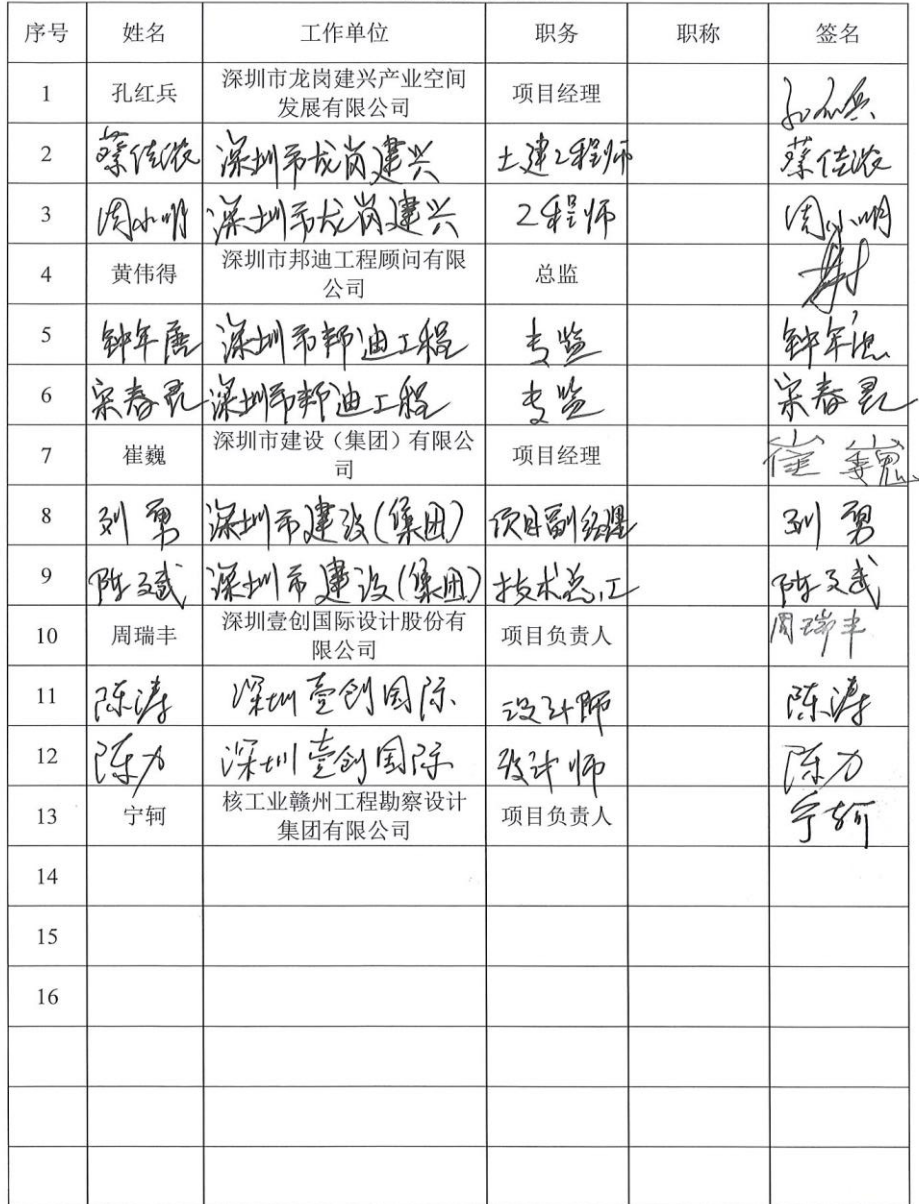 序号 姓名 工作单位 职务 职称 签名
1 孔红兵 深圳市龙岗建兴产业空间
发展有限公司 项目经理 孔红兵
2 蔡佳浓 深圳市龙岗建兴 土建工程师 蔡佳浓
3 周小明 深圳市龙岗建兴 工程师 周小明
4 黄伟得 深圳市邦迪工程顾问有限
公司 总监
5 钟年 深圳市邦迪工程 专监 钟年
6 宋春 深圳市邦迪工程 专监 宋春
7 崔巍 深圳市建设（集团）有限公
司 项目经理 崔巍
8 刘勇 深圳市建设(集团) 项目副经理 刘勇
9 陈文斌 深圳市建设(集团) 技术总工 陈文斌
10 周瑞丰 深圳壹创国际设计股份有
限公司 项目负责人 周瑞丰
11 陈涛 深圳壹创国际 设计师 陈涛
12 陈力 深圳壹创国际 设计师 陈力
13 宁轲 核工业赣州工程勘察设计
集团有限公司 项目负责人 宁轲
14
15
16